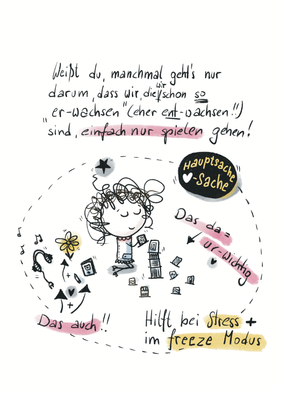 Weißt du, manchmal geht's nur
darum, dass wir, die wir schon so
"er-wachsen" (eher ent-wachsen!!)
sind, einfach nur spielen gehen!
Hauptsache
-Sache
Das da =
ur-wichtig
Das auch!!
Hilft bei Stress +
im freeze Modus